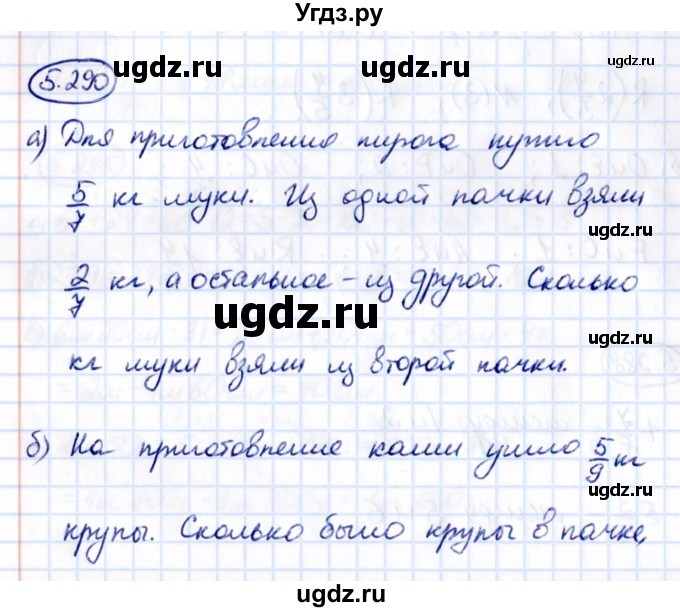 Угдз.ру
5.290
ugdz.ru ugdz.ru
а) Для приготовления пирога нужно
5/7 кг муки. Из одной пачки взяли
ugdz.ru
2/7 кг, а остальное – из другой. Сколько
ugdz.ru
ugdz.ru
кг муки взяли из второй пачки.
б) На приготовление каши ушло 5/9 кг
ugdz.ru
крупы. Сколько было крупы в пачке,
ugdz.ru ugdz.ru